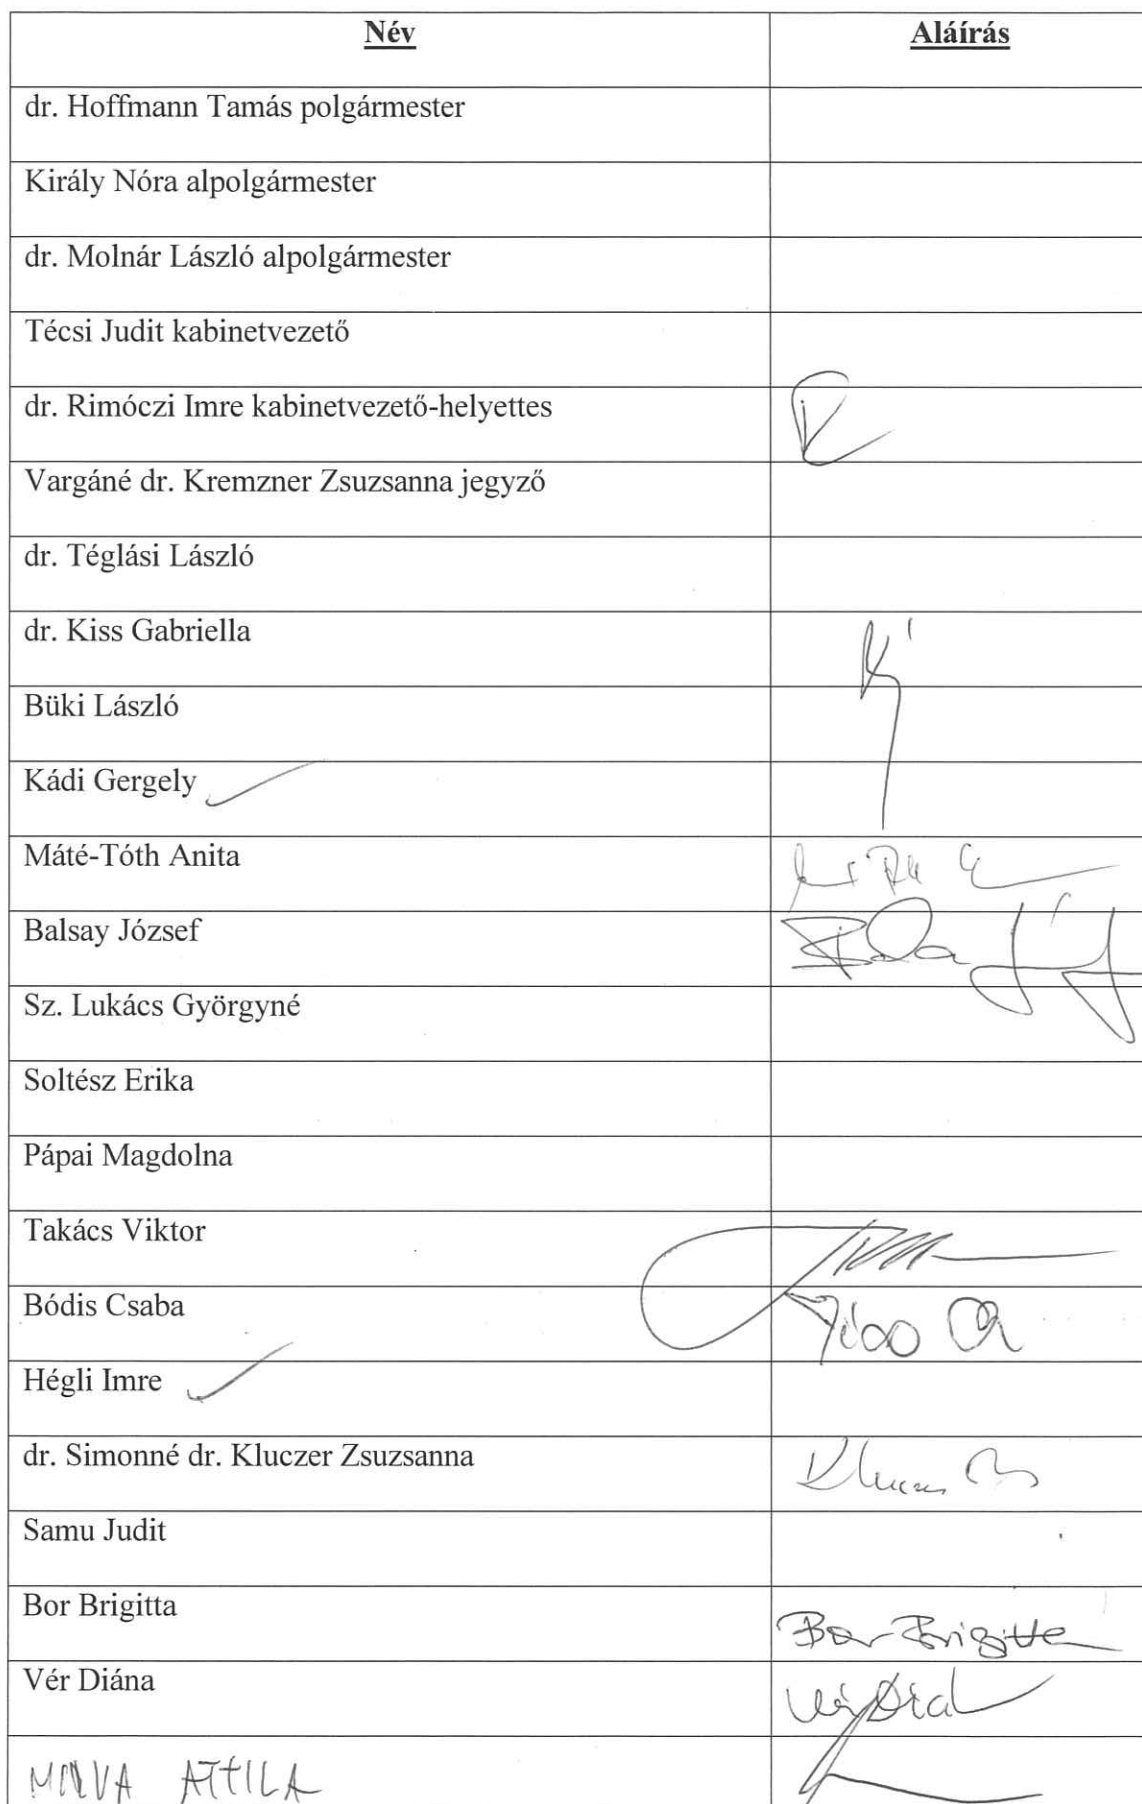 Név Aláírás
dr. Hoffmann Tamás polgármester
Király Nóra alpolgármester
dr. Molnár László alpolgármester
Técsi Judit kabinetvezető
dr. Rimóczi Imre kabinetvezető-helyettes
Vargáné dr. Kremzner Zsuzsanna jegyző
dr. Téglási László
dr. Kiss Gabriella
Büki László
Kádi Gergely
Máté-Tóth Anita
Balsay József
Sz. Lukács Györgyné
Soltész Erika
Pápai Magdolna
Takács Viktor
Bódis Csaba
Hégli Imre
dr. Simonné dr. Kluczer Zsuzsanna
Samu Judit
Bor Brigitta Bor Brigitta
Vér Diána
ATTILA